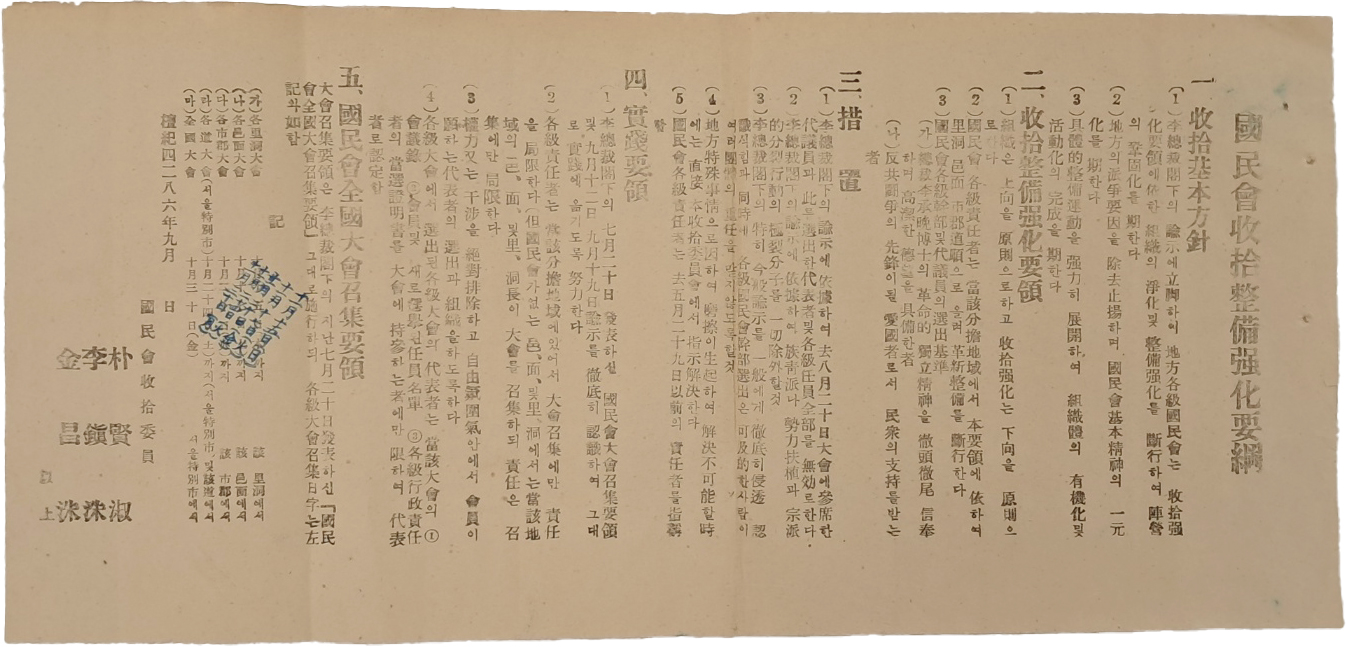 國民會收拾整備强化要綱
一 收拾基本方針
(1)李總裁閣下의 諭示에立脚하여 地方各級國民會는 收拾强
化要領에依한 組織의 淨化및 整備强化를 斷行하여 陣營
의 鞏固化를 期한다
(2)地方의派爭要因을 除去止揚하며 國民會基本精神의 一元
化를 期한다
(3)具體的整備運動을 强力히 展開하여 組織體의 有機化및
活動化의 完成을 期한다
二、收拾整備强化要領
(1)組織은 上向을 原則으로하고 收拾强化는 下向을 原則으
로한다
(2)國民會 各級責任者는 當該分擔地域에서 本要領에 依하여
里洞 邑面 市郡道順으로 올려 革新整備를 斷行한다
(3)國民會各級幹部및代議員의選出基準
(가)總裁李承晩博士의 革命的 獨立精神을 徹頭徹尾 信奉
하며 高潔한 德望을 具備한者
(나)反共鬪爭의 先鋒이될 愛國者로서 民衆의支持를받는
者
三、措置
(1)李總裁閣下의 諭示에 依據하여 去八月二十日大會에參席한
代議員과 此로選出한代表者및各級任員全部를 無効로한다
(2)李總裁閣下의諭示에 依據하여 族靑派나 勢力扶植과 宗派
的分裂行動의 極裂分子를 一切除外할것
(3)李總裁閣下의 特히 今般諭示를 一般에게 徹底히浸透 認
識식힘과 同時에 各級國民會幹部選出은 可及的한사람이
여러團體의 重任을 맡지않도록할것
(4)地方特殊事情으로因하여 磨擦이生起하여 解決不可能할時
에는 直接 本收拾委員會에서 指示解決한다
(5)國民會各級責任者는 去五月二十九日以前의 責任者를指稱
함
四、實踐要領
(1)李總裁閣下의 七月二十日 發表하신 國民會大會召集要領
및 九月十二日 九月十九日諭示를 徹底히 認識하여 그대
로 實踐에 옮기도록 努力한다
(2)各級責任者는 當該分擔地域에있어서 大會召集에만 責任
을 局限한다(但國民會가없는 邑、面、및里、洞에서는當該地
域의 邑、面、및里、洞長이 大會를 召集하되 責任은 召
集에만 局限한다
(3)權力又는 干涉을 絕對排除하고 自由雰圍氣안에서 會員이
願하는代表者의 選出과 組織을하도록한다
(4)各級大會에서 選出된各級大會의 代表者는 當該大會의 ①
會議錄 ②會員및 새로選擧된任員名單 ③各級行政責任
者의 當選證明書를 大會에 持參하는者에만 限하여 代表
者로認定한다
五、國民會全國大會召集要領
大會召集要領은 李總裁閣下의 지난七月二十日發表하신「國民
會全國大會召集要領」그대로施行하되 各級大會召集日字는左
記와如함
記
(가)各里洞大會 까지 該 里洞에서
(나)各邑面大會 까지 該 邑面에서
(다)各市郡大會 十月 까지 該 市郡에서
(라)各道大會(서울特別市)十月二十四日(土)까지(서울特別市및該道에서
(마)全國大會 十月三十日(金) 서울特別市에서
檀紀四二八六年九月 日
國民會收拾委員
朴賢淑
李鎭洙
金昌洙
上